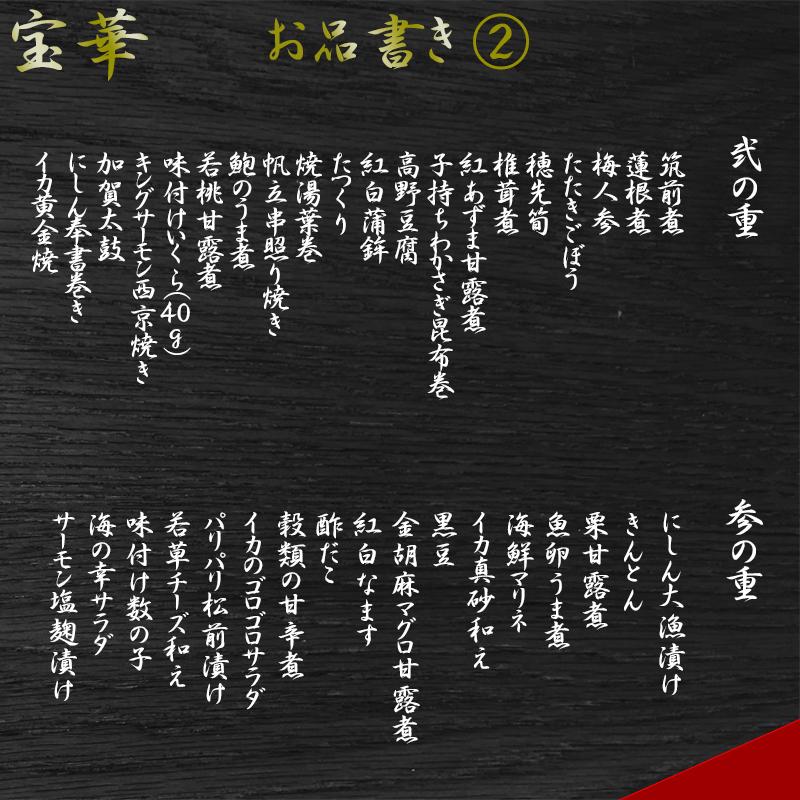 宝華
お品書き②
弐の重
筑前煮
蓮根煮
梅人参
たたきごぼう
穂先筍
椎茸煮
紅あずま甘露煮
子持ちわかさぎ昆布巻
高野豆腐
紅白蒲鉾
たつくり
焼湯葉巻
帆立串照り焼き
鮑のうま煮
若桃甘露煮
味付けいくら(40g)
キングサーモン西京焼き
加賀太鼓
にしん奉書巻き
イカ黄金焼
参の重
にしん大漁漬け
きんとん
栗甘露煮
魚卵うま煮
海鮮マリネ
イカ真砂和え
黒豆
金胡麻マグロ甘露煮
紅白なます
酢だこ
穀類の甘辛煮
イカのゴロゴロサラダ
パリパリ松前漬け
若草チーズ和え
味付け数の子
海の幸サラダ
サーモン塩麹漬け